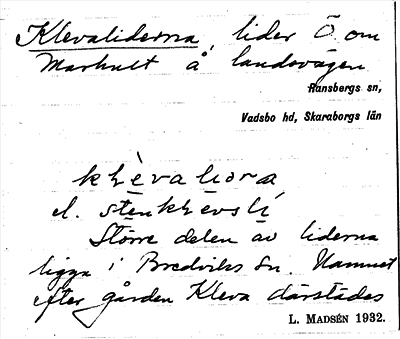 Klevaliderna, lider Ö. om
Markult å landsvägen
Ransbergs sn,
Vadsbo hd, Skaraborgs län
el.
Större delen av liderna
ligga i Bredviks Sn. Namnet
efter gården Kleva därstädes
L. MADSÉN 1932.